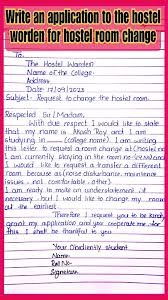 Write an application to the hostel
worden for hostel room change
To,
The Hostel Warden
Name of the College
Address
Date 17/09/2023
Subject- Request to change the hostel room.
Respected Sir/Madam,
With due respect I would like to state
that my name is Akash Roy and I am
studying in (college name). I am writing
this letter to request a room change at (hostel name)
I am currently staying in the room no-
and I would like to transfer a different
room because of (noise disturbance, maintenance
issues, not comfortable other)
I am ready to make an understatement if
necessary but I would like to change my room
out the earliest
Therefore I request you to be kindly
grant my application and you cooperate me for
this I shall be thankful to you
Your Obediently student
Name-
Roll No-
Signature